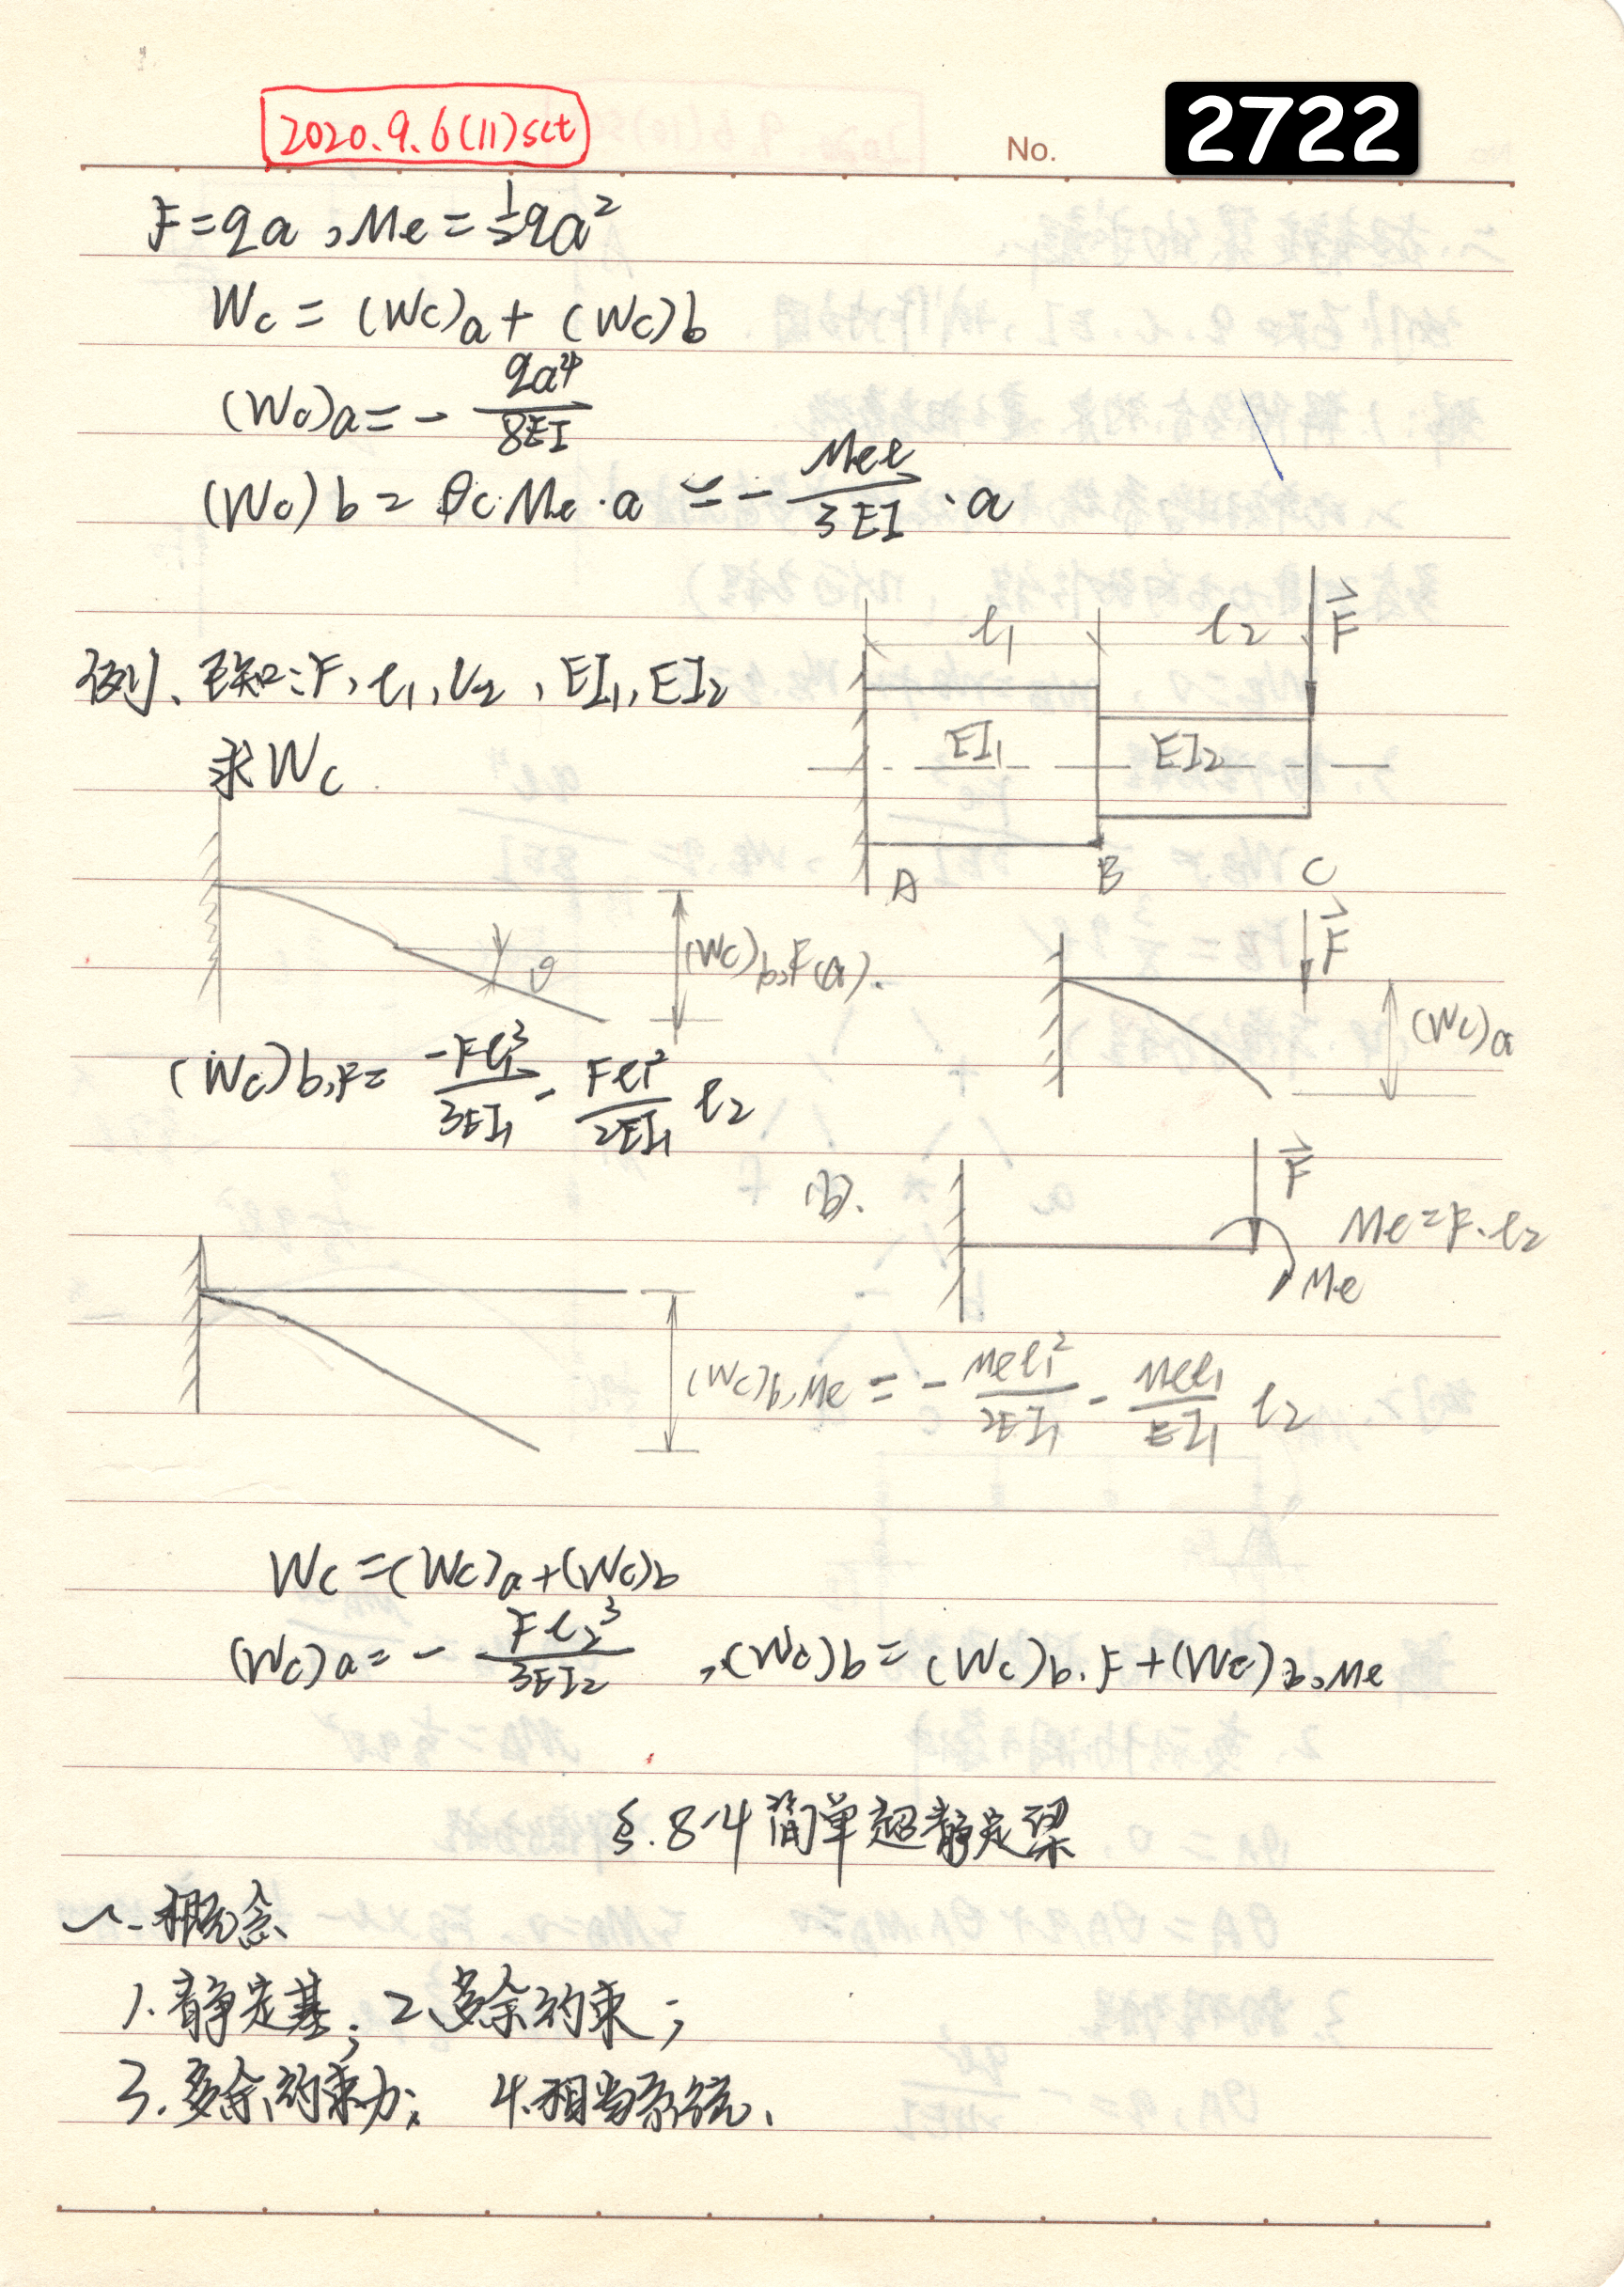 2020.9.6(11)sct
No.
2722
F=qa,Me=½qa²
Wc=(Wc)a+(Wc)b
(Wc)a=-qa⁴/8EI
(Wc)b=θcMe·a=-Mel/3EI·a
l₁ l₂ F
例、已知:F,l₁,l₂,EI₁,EI₂
求Wc
EI₁ EI₂
A B C
θ (Wc)b,F(a).
F (Wc)a
(Wc)b,F=-Fl₁³/3EI₁-Fl₁²/2EI₁ l₂
(b). F Me=F·l₂
Me
(Wc)b,Me=-Mel₁²/2EI₁-Mel₁/EI₁ l₂
Wc=(Wc)a+(Wc)b
(Wc)a=-Fl₂³/3EI₂,(Wc)b=(Wc)b.F+(Wc)b,Me
§.8-4简单超静定梁
一.概念
1.静定基;2、多余约束;
3.多余约束力;4.相当系统、